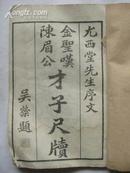 尤西堂先生序文
金聖嘆
陳眉公
才子尺牘
吳蔭題